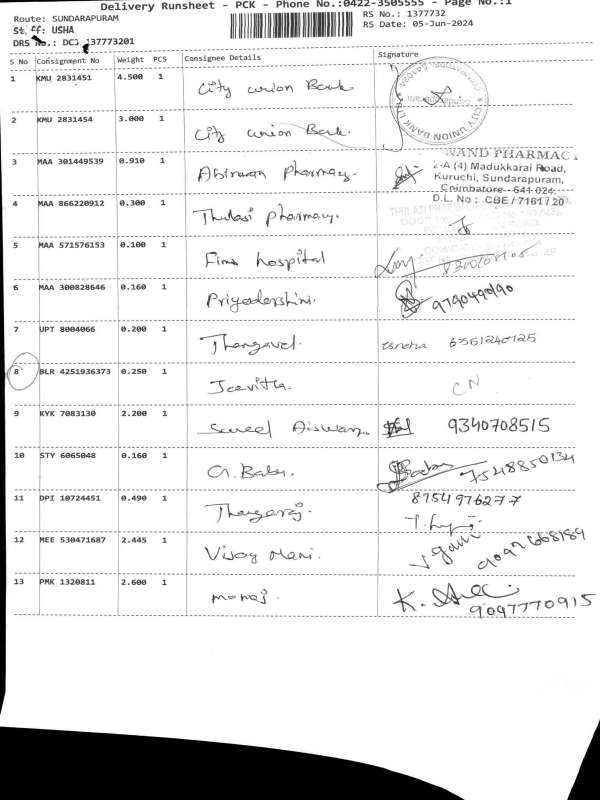 Delivery Runsheet - PCK - Phone No.:0422-3505555 - Page No.:1
Route: SUNDARAPURAM
RS No.: 1377732
St. ff: USHA
RS Date: 05-Jun-2024
DRS No.: DCJ 137773201
S No Consignment No Weight PCS Consignee Details Signature
1 KMU 2831451 4.500 1 City union Bank
CITY UNION BANK LTD
2 KMU 2831454 3.000 1 City union Bank.
3 MAA 301449539 0.910 1 Abirwan Pharmacy.
NAND PHARMACY
2-A (4) Madukkarai Road,
Kuruchi, Sundarapuram,
Coimbatore - 641 024.
D.L. No : CBE / 7161 / 20
4 MAA 866220912 0.300 1 Thulasi pharmacy.
5 MAA 571576153 0.100 1 Fims hospital
6 MAA 300828646 0.160 1 Priyadarshini. 9790490190
7 UPT 8004066 0.200 1 Thangavel.
8 BLR 4251936373 0.250 1 Jeevitha. CN
9 KYK 7083130 2.200 1 9340708515
10 STY 6065048 0.160 1 G. Baby. 7548850134
11 DPI 10724451 0.490 1 Thangaraj. 8754976277
12 MEE 530471687 2.445 1 Vijay Mani.
13 PMK 1320811 2.600 1 manoj. K. 9097770915